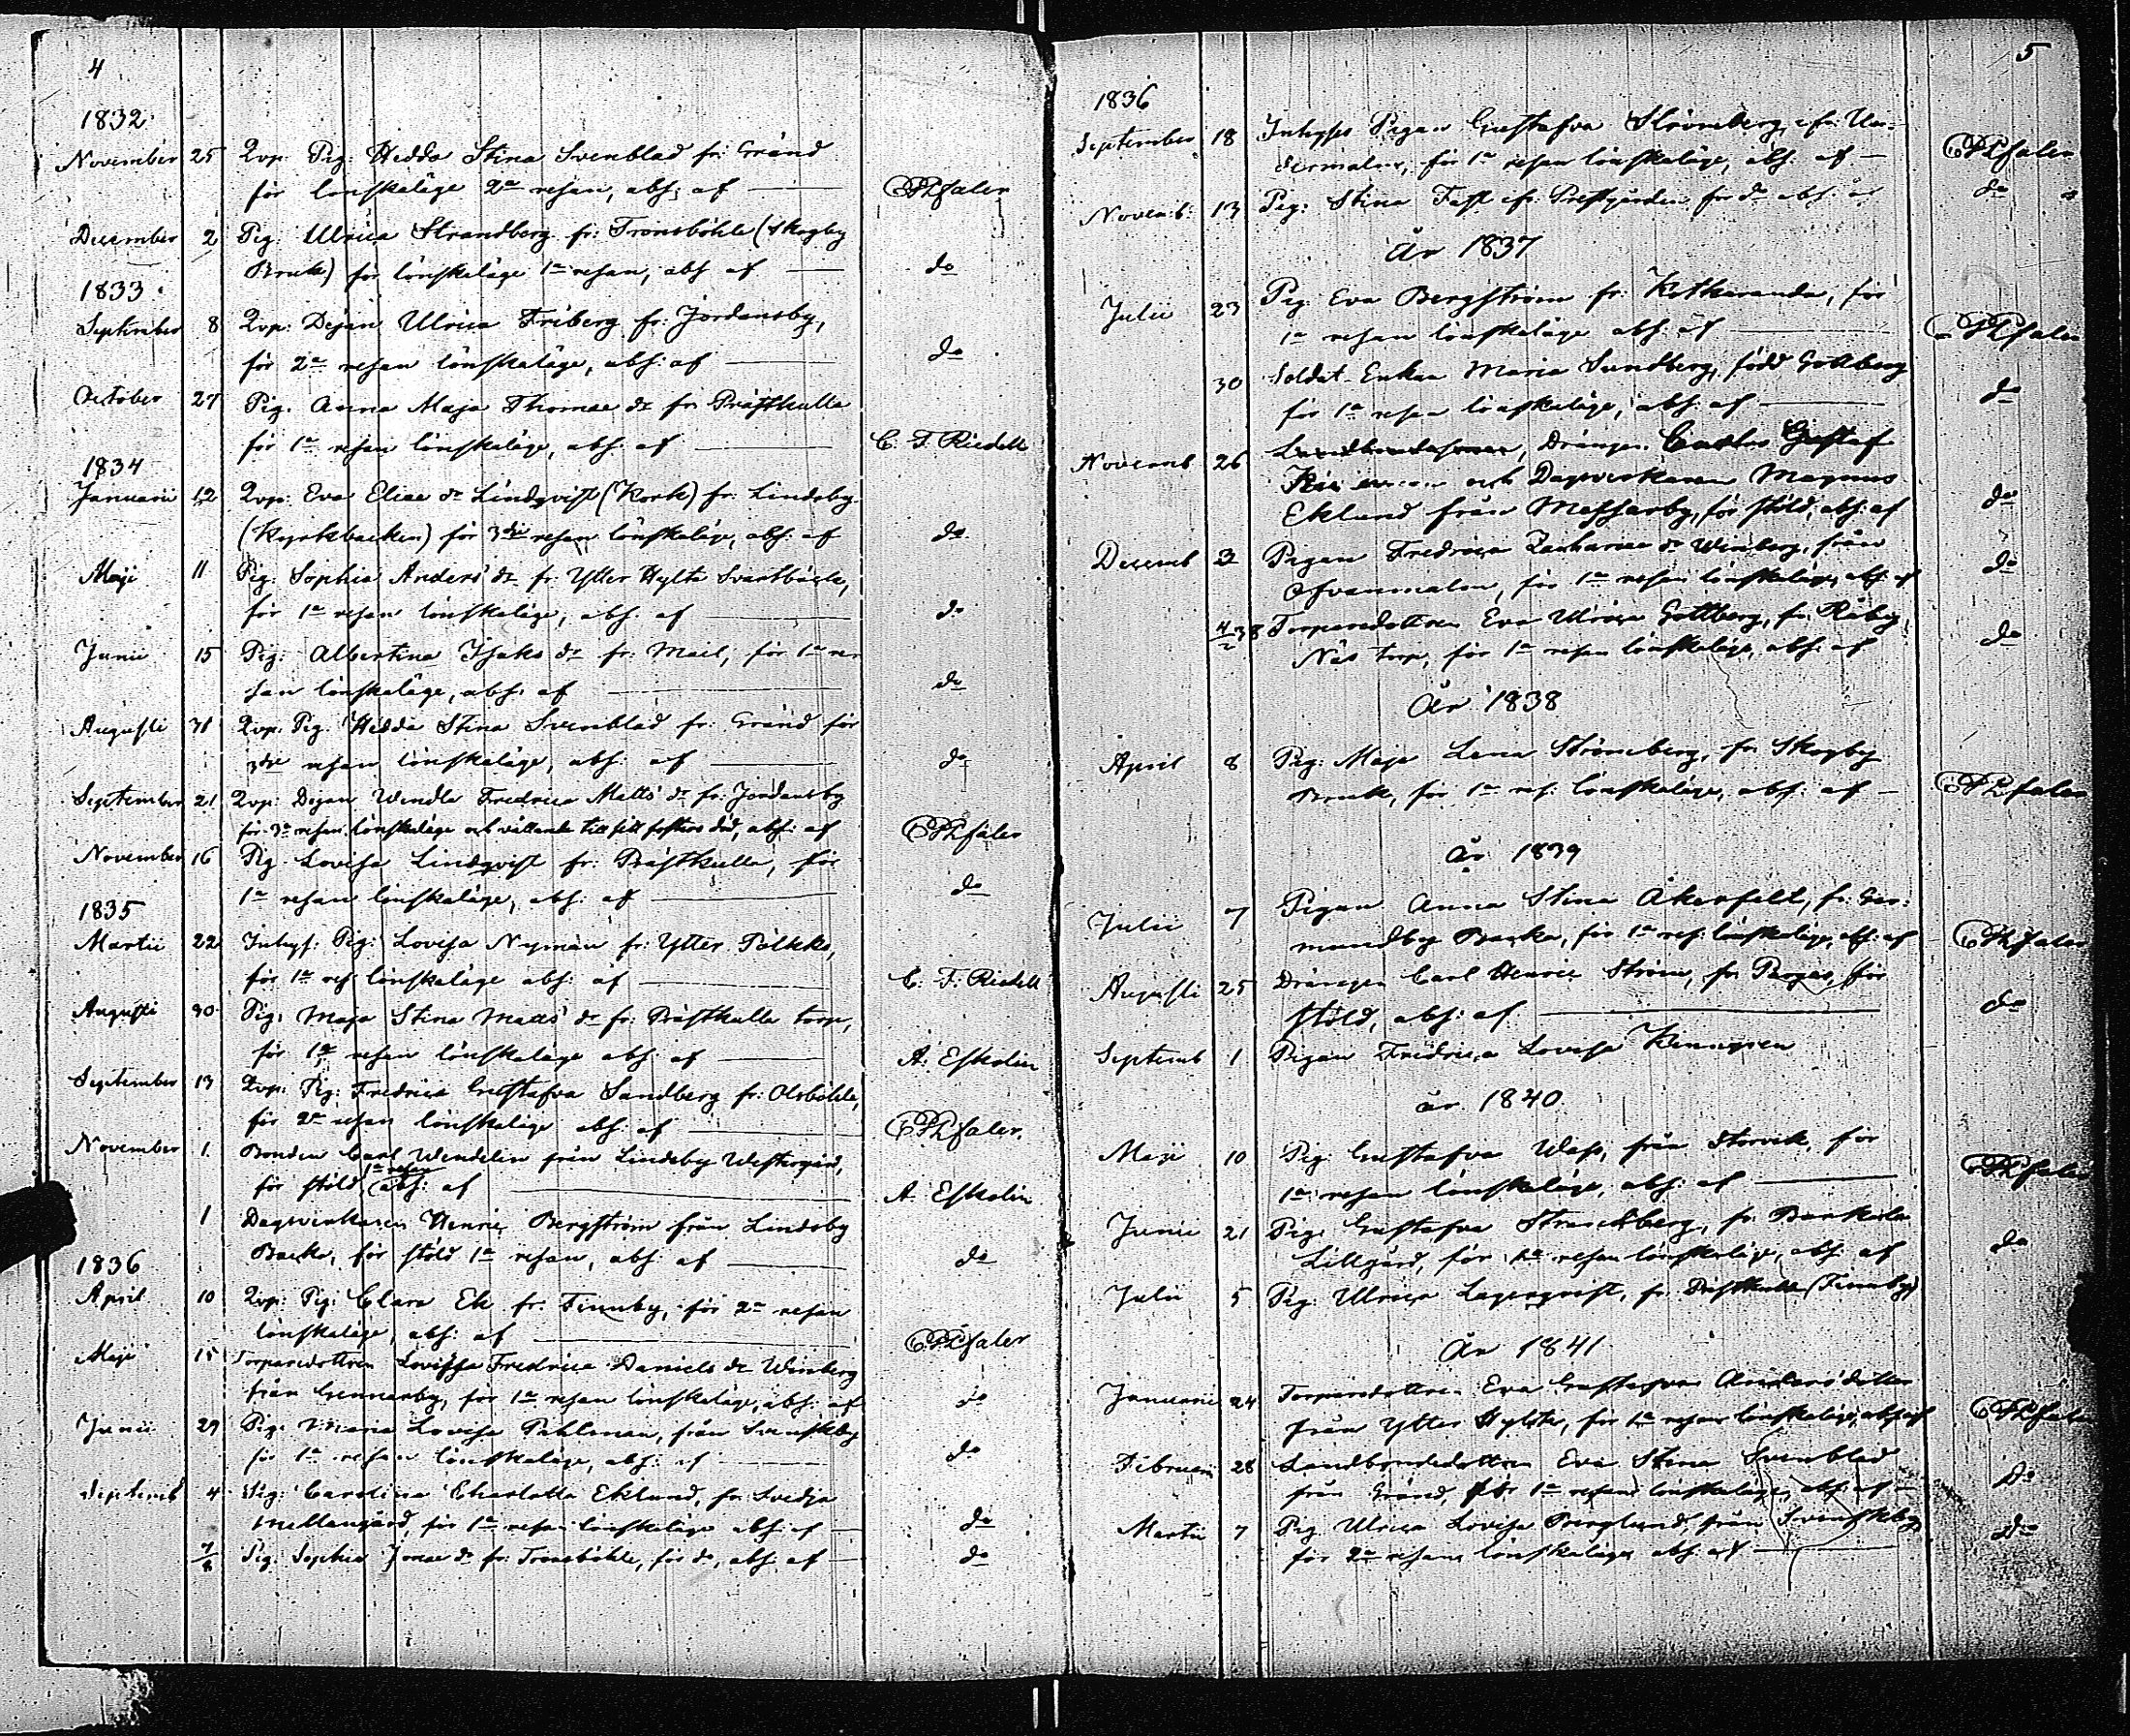 4
1832
November 25 Qvp: Pig: Hedda Stina Svenblad fr: Gränd
för lönskaläge 2a resan, abs: af — CPHfaler
December 2 Pig: Ulrica Strandberg fr: Tronsböhle (Skogby
Bruk) för lönskaläge 1a resan, abs: af — do
1833
September 8 Qvp: Dejan Ulrica Friberg fr: Jordansby,
för 2a resan lönskaläge, abs: af — do
October 27 Pig: Anna Maja Thomae dr fr: Prästkulla
för 1a resan lönskaläge, abs: af — C. F. Riedell
1834
Januarii 12 Qvp: Eva Eliae dr Lindqvist (Kork) fr: Lindsby
(Kyrkbacken) för 3die resan lönskaläge, abs: af do
Maji 11 Pig: Sophia Anders dr fr: Ytter Hylta Svartbäcle,
för 1a resan lönskaläge, abs: af — do
Junii 15 Pig: Albertina Isaks dr fr: Mail, för 1a re
san lönskaläge, abs: af — do
Augusti 31 Qvp: Pig: Hedda Stina Svenblad fr: Gränd för
3die resan lönskaläge, abs: af — do
September 21 Qvp: Dejan Wendla Fredrica Matts dr fr: Jordansby
för 3e resan lönskaläge och vållande till sitt fosters död, abs: af CPHfaler
November 16 Pig: Lovisa Lindqvist fr: Prästkulla, för
1a resan lönskaläge, abs: af — do
1835
Martii 22 Inhys: Pig: Lovisa Nyman fr: Ytter Tölkko,
för 1a res lönskaläge abs: af — C. F. Riedell
Augusti 30 Pig: Maja Stina Matts dr fr: Prästkulla torp,
för 1a resan lönskaläge abs: af — A. Eskolin
September 13 Qvp: Pig: Fredrica Gustafva Sandberg fr: Olsböhle,
för 2a resan lönskaläge abs: af — CPHfaler
November 1 Bonden Carl Wendelin från Lindsby Westergård,
för stöld 1a resan abs: af — A. Eskolin
1 Dagsverkaren Henric Bergström från Lindsby
Backa, för stöld 1a resan, abs: af — do
1836
April 10 Qvp: Pig: Clara Ek fr: Finnby, för 2a resan
lönskaläge, abs: af — CPHfaler
Maji 15 Torparedottren Lovisa Fredrica Daniels dr Winberg
från Gennarby, för 1a resan lönskaläge, abs: af do
Junii 29 Pig: Maria Lovisa Pahlman, från Svenskby
för 1a resan lönskaläge, abs: af — do
Septemb 4 Pig: Carolina Charlotta Eklund, fr: Svedja
Mellangård, för 1a resan lönskaläge abs: af — do
7/8 Pig: Sophia Jonae dr fr: Tronsböhle, för do, abs: af — do
5
1836
September 18 Inhyses Pigan Gustafva Strömberg, fr:
för 1a resan lönskaläge, abs: af — CPHfaler
Novemb: 13 Pig: Stina Fast fr: Prestgården för do abs: af do
År 1837
Julii 23 Pig: Eva Bergström fr: Kothäranda, för
1a resan lönskaläge abs: af — CPHfaler
30 Soldat Enkan Maria Sundberg, född Gottberg
för 1a resan lönskaläge, abs: af — do
Novemb 26 Drängen Gustaf
och Dagsverkaren Magnus
Eklund från Massarby, för stöld, abs: af do
Decemb 3 Pigan Fredrica Zachariae dr Winberg, från
Ofvanmalm, för 1a resan lönskaläge, abs: af do
4/2 38 Torparedottren Eva Ulrica Gottberg, fr: Råby,
Näs torp, för 1a resan lönskaläge, abs: af do
År 1838
April 8 Pig: Maja Lena Strömberg, fr: Skogby
Bruk, för 1a res: lönskaläge, abs: af — CPHfaler
År 1839
Julii 7 Pigan Anna Stina Åkerfelt, fr: Ger-
mundby Backa, för 1a res: lönskaläge, abs: af CPHfaler
Augusti 25 Drängen Carl Henric Ström, fr: Pargas, för
stöld, abs: af — do
Septemb 1 Pigan Fredrica Lovisa
år 1840
Maji 10 Pig: Gustafva Wass, från Storvik, för
1a resan lönskaläge, abs: af — CPHfaler
Junii 21 Pig: Gustafva Strandberg, fr:
Lillgård, för 1a resan lönskaläge, abs: af do
Julii 5 Pig: Ulrica Lagerqvist, fr: Prästkulla (Finnby)
År 1841
Januarii 24 Torparedottren Eva Gustafva Andersdotter
från Ytter Hylta, för 1a resan lönskaläge, abs: af CPHfaler
Februari 28 Landbondedottren Eva Stina Svenblad
från Gränd, för 1a resan lönskaläge, abs: af — Do
Martii 7 Pig: Ulrica Lovisa Berglund, från Svenskby
för 2a resan lönskaläge abs: af — Do